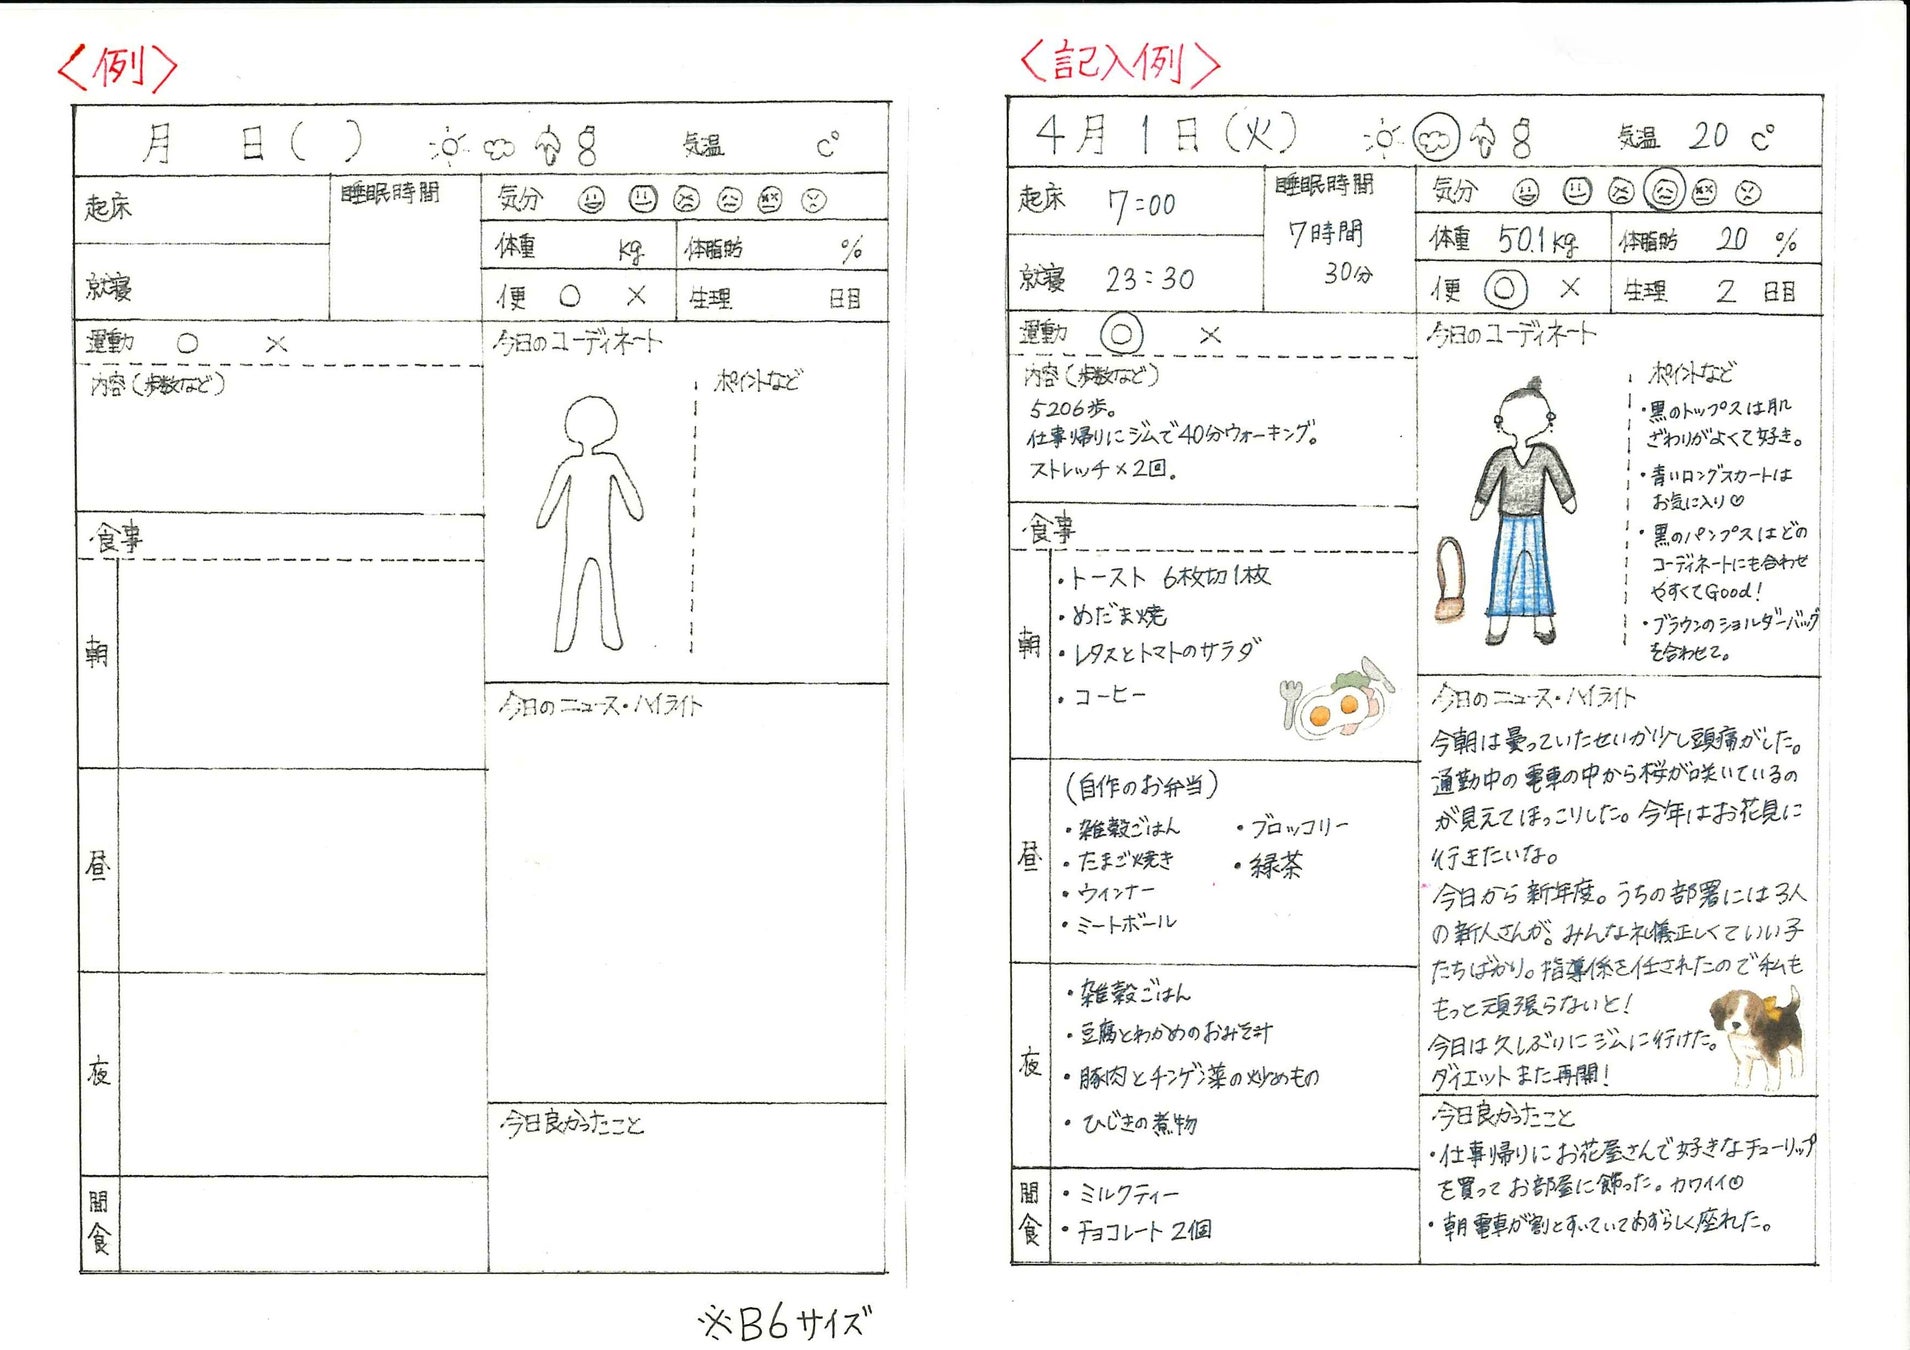 〈例〉
月 日( ) 気温 c°
起床
睡眠時間
気分
体重 kg 体脂肪 %
就寝
便 ○ × 生理 日目
運動 ○ ×
内容(歩数など)
今日のコーディネート
ポイントなど
食事
朝
昼
夜
間食
今日のニュース・ハイライト
今日良かったこと
※B6サイズ
〈記入例〉
4月1日(火) 気温 20 c°
起床 7:00
睡眠時間
7時間
30分
気分
体重 50.1kg 体脂肪 20 %
就寝 23:30
便 ○ × 生理 2 日目
運動 ○ ×
内容(歩数など)
5206歩。
仕事帰りにジムで40分ウォーキング。
ストレッチ×2回。
今日のコーディネート
ポイントなど
・黒のトップスは肌
ざわりがよくて好き。
・青いロングスカートは
お気に入り♡
・黒のパンプスはどの
コーディネートにも合わせ
やすくてGood!
・ブラウンのショルダーバッグ
を合わせて。
食事
朝
・トースト 6枚切1枚
・めだま焼
・レタスとトマトのサラダ
・コーヒー
昼
(自作のお弁当)
・雑穀ごはん ・ブロッコリー
・たまご焼き ・緑茶
・ウィンナー
・ミートボール
夜
・雑穀ごはん
・豆腐とわかめのおみそ汁
・豚肉とチンゲン菜の炒めもの
・ひじきの煮物
間食
・ミルクティー
・チョコレート 2個
今日のニュース・ハイライト
今朝は曇っていたせいか少し頭痛がした。
通勤中の電車の中から桜が咲いているの
が見えてほっこりした。今年はお花見に
行きたいな。
今日から新年度。うちの部署には3人
の新人さんが。みんな礼儀正しくていい子
たちばかり。指導係を任されたので私も
もっと頑張らないと!
今日は久しぶりにジムに行けた。
ダイエットまた再開!
今日良かったこと
・仕事帰りにお花屋さんで好きなチューリップ
を買ってお部屋に飾った。カワイイ☺
・朝電車が割とすいていてめずらしく座れた。